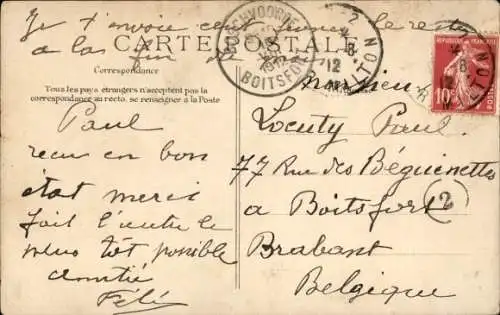 Je t'envoie ce le reste
a la fin de
CARTE POSTALE
Correspondance
Tous les pays étrangers n'acceptent pas la
correspondance au recto. se renseigner à la Poste
BOITSFORT
1912
12
10c
Paul
reçu en bon
état merci
fait l'autre le
plus tôt possible
amitié
Félix
Monsieur
Locuty Paul.
77 Rue des Béguinettes
a Boitsfort
2
Brabant
Belgique